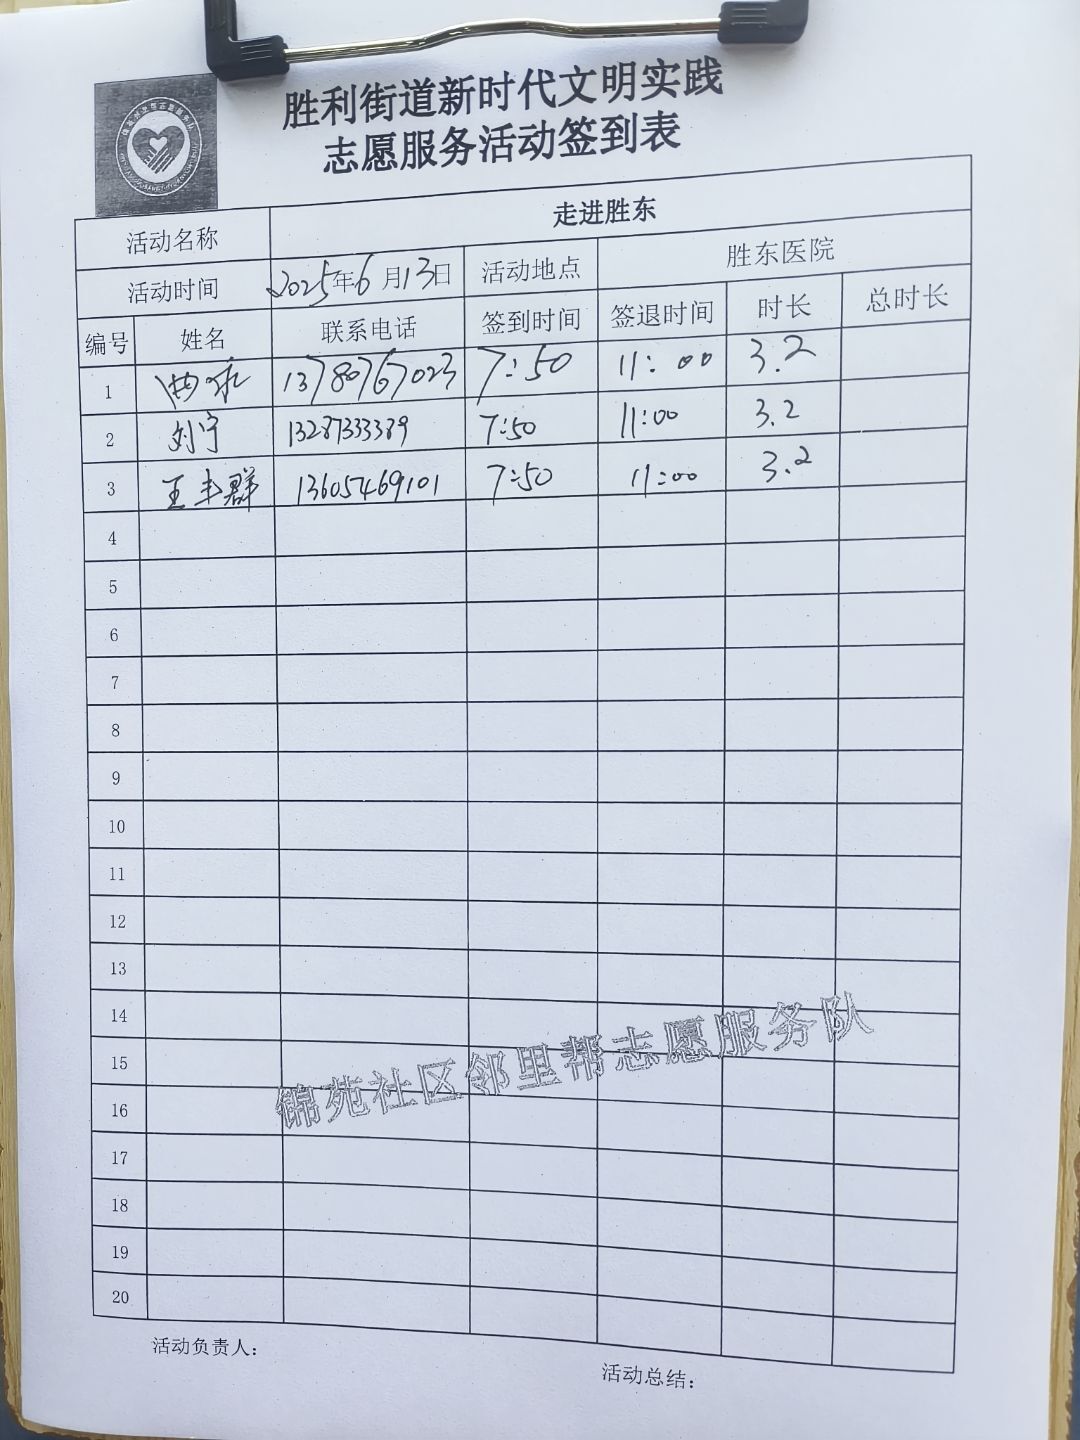 胜利街道新时代文明实践
志愿服务活动签到表
活动名称 走进胜东
活动时间 2025年6月13日 活动地点 胜东医院
编号 姓名 联系电话 签到时间 签退时间 时长 总时长
1 13780767023 7:50 11:00 3.2
2 刘宁 13287333389 7:50 11:00 3.2
3 王丰群 13605469101 7:50 11:00 3.2
4
5
6
7
8
9
10
11
12
13
14
15
16
17
18
19
20
锦苑社区邻里帮志愿服务队
活动负责人：
活动总结：